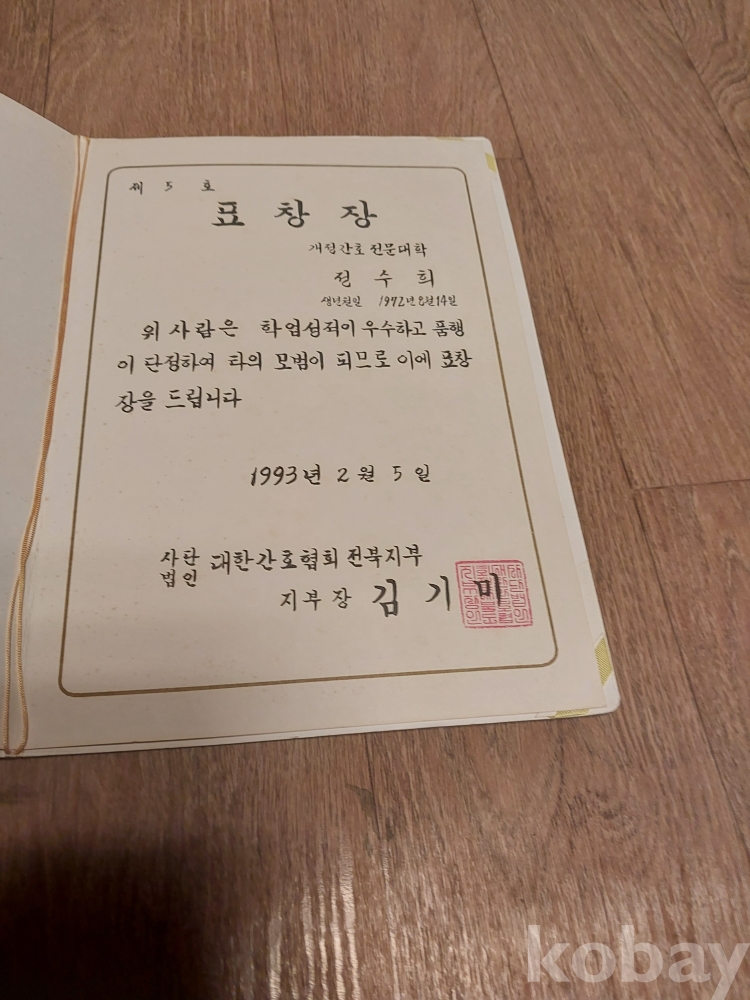 제 5 호
표창장
개정간호전문대학
정수희
생년월일 1972년 8월 14일
위 사람은 학업성적이 우수하고 품행
이 단정하여 타의 모범이 되므로 이에 표창
장을 드립니다
1993년 2월 5일
사단법인 대한간호협회 전북지부
지부장 김기미
kobay